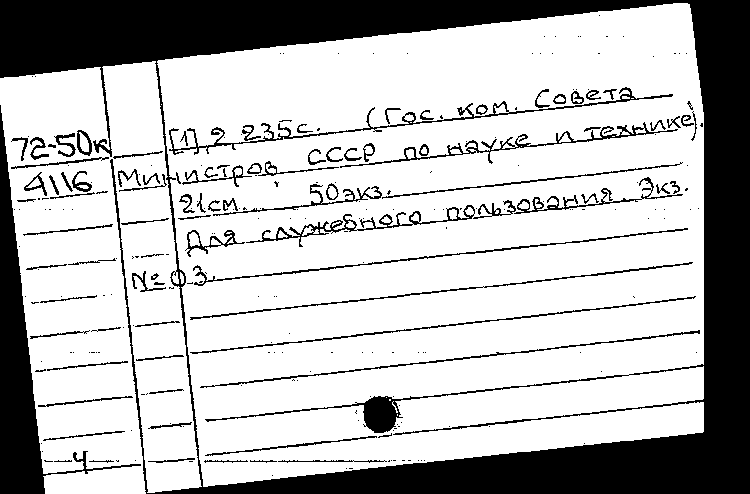 72-50к
4116
[1], 2, 235с. (Гос. ком. Совета
Министров СССР по науке и технике).
21см. 50экз.
Для служебного пользования. Экз.
№ 03.
4